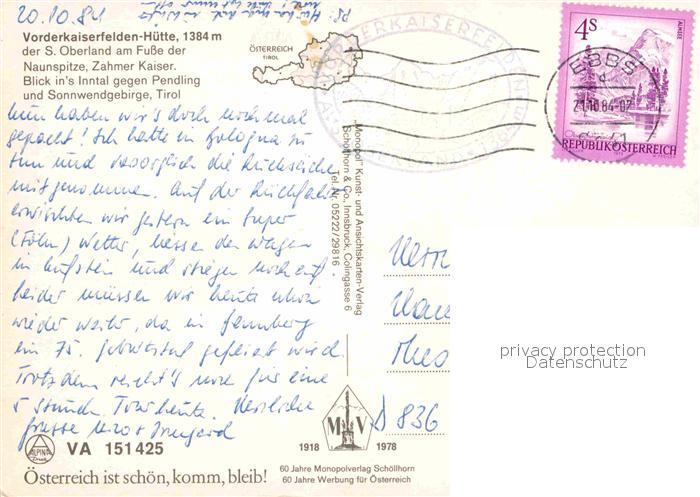 20.10.84
Vorderkaiserfelden-Hütte, 1384 m
der S. Oberland am Fuße der
Naunspitze, Zahmer Kaiser.
Blick in's Inntal gegen Pendling
und Sonnwendgebirge, Tirol
ÖSTERREICH
TIROL
Nun haben wir's doch noch mal
gepackt! Ich hatte in Bologna zu
tun und vorsorglich die Rucksäcke
mitgenommen. Auf der Rückfahrt
erwischten wir gestern ein Super
(Föhn) Wetter, liessen den Wagen
in Kufstein und stiegen noch auf
leider müssen wir heute schon
wieder weiter, da in
ein 75. Geburtstag gefeiert wird.
Trotzdem reicht's noch für eine
5 Stund. Tour heute. Herzliche
Grüsse Irmgard
"Monopol" Kunst- und Ansichtskarten-Verlag
Schöllhorn & Co., Innsbruck, Colingasse 6
Tel. Nr. 05222/29816
4S
ALMSEE
REPUBLIK ÖSTERREICH
EBBS
21.10.84-07
VORDERKAISERFELDEN
Herrn
Theo
D 836
privacy protection
Datenschutz
ALPINA
VA 151425
M V
1918 1978
Österreich ist schön, komm, bleib!
60 Jahre Monopolverlag Schöllhorn
60 Jahre Werbung für Österreich